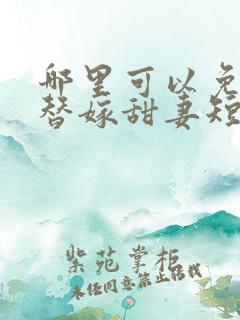 哪里可以免
替嫁甜妻短
紫苑掌柜
未经同意禁止转载